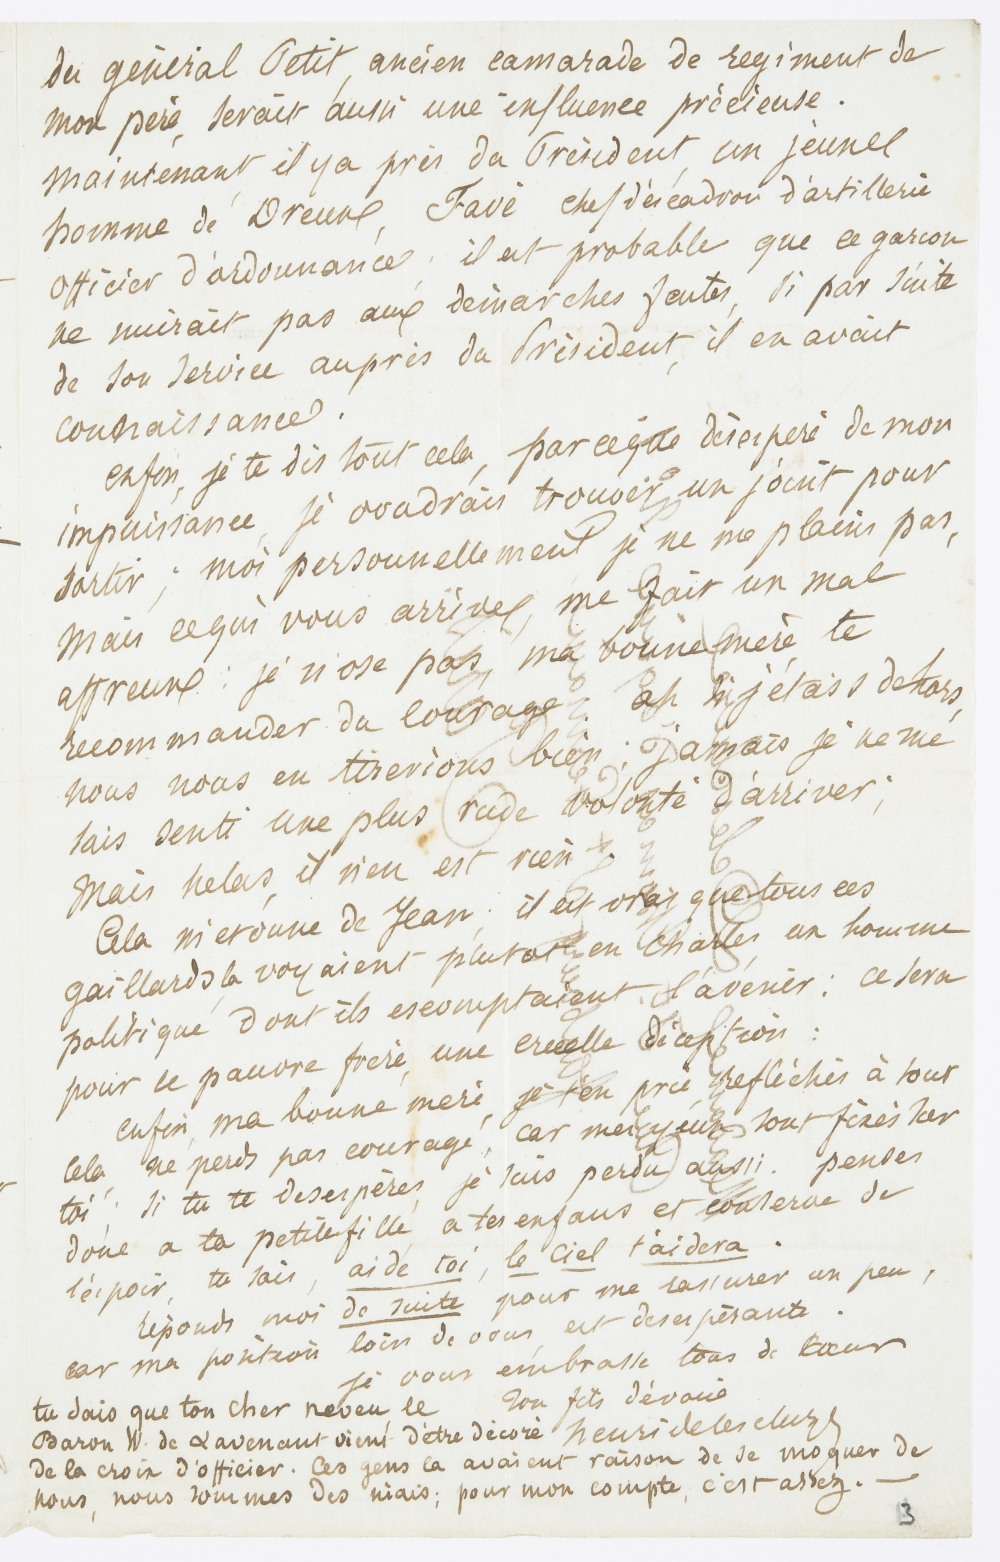 du général Petit, ancien camarade de regiment de
mon père, serait aussi une influence précieuse.
maintenant, il y a près du Président, un jeune
homme de Dreux, Favé chef d'escadron d'artillerie
officier d'ordonnance. il est probable que ce garcon
ne nuirait pas aux démarches faites, si par suite
de son service auprès du Président, il en avait
connaissance.
enfin, je te dis tout cela, parceque désespéré de mon
impuissance, je voudrais trouver un joint pour
sortir; moi personnellement je ne me plains pas,
mais cequi vous arrive, me fait un mal
affreux: je n'ose pas, ma bonne mère te
recommander du courage. ah si j'étais dehors,
nous nous en tirerions bien; jamais je ne me
suis senti une plus rude volonté d'arriver;
mais helas, il n'en est rien.
Cela m'etonne de Jean; il est vrai que tous ces
gaillards là voyaient plutot en Charles, un homme
politique dont ils escomptaient l'avenir: ce sera
pour ce pauvre frère, une cruelle déception:
enfin, ma bonne mère, je t'en prie, refléchis à tout
cela, ne perds pas courage, car mes yeux sont fixés sur
toi; si tu te desespères, je suis perdu aussi. penses
donc a ta petite fille, a tes enfans et conserve de
l'espoir, tu sais, aide toi, le Ciel t'aidera.
réponds moi de suite pour me rassurer un peu,
car ma position loin de vous est desespérante.
je vous embrasse tous de Coeur
Ton fils dévoué
henri delescluze
tu sais que ton cher neveu, le
Baron W. de Lavenant vient d'être décoré
de la croix d'officier. Ces gens la avaient raison de se moquer de
nous, nous sommes des niais; pour mon compte, c'est assez. —
3